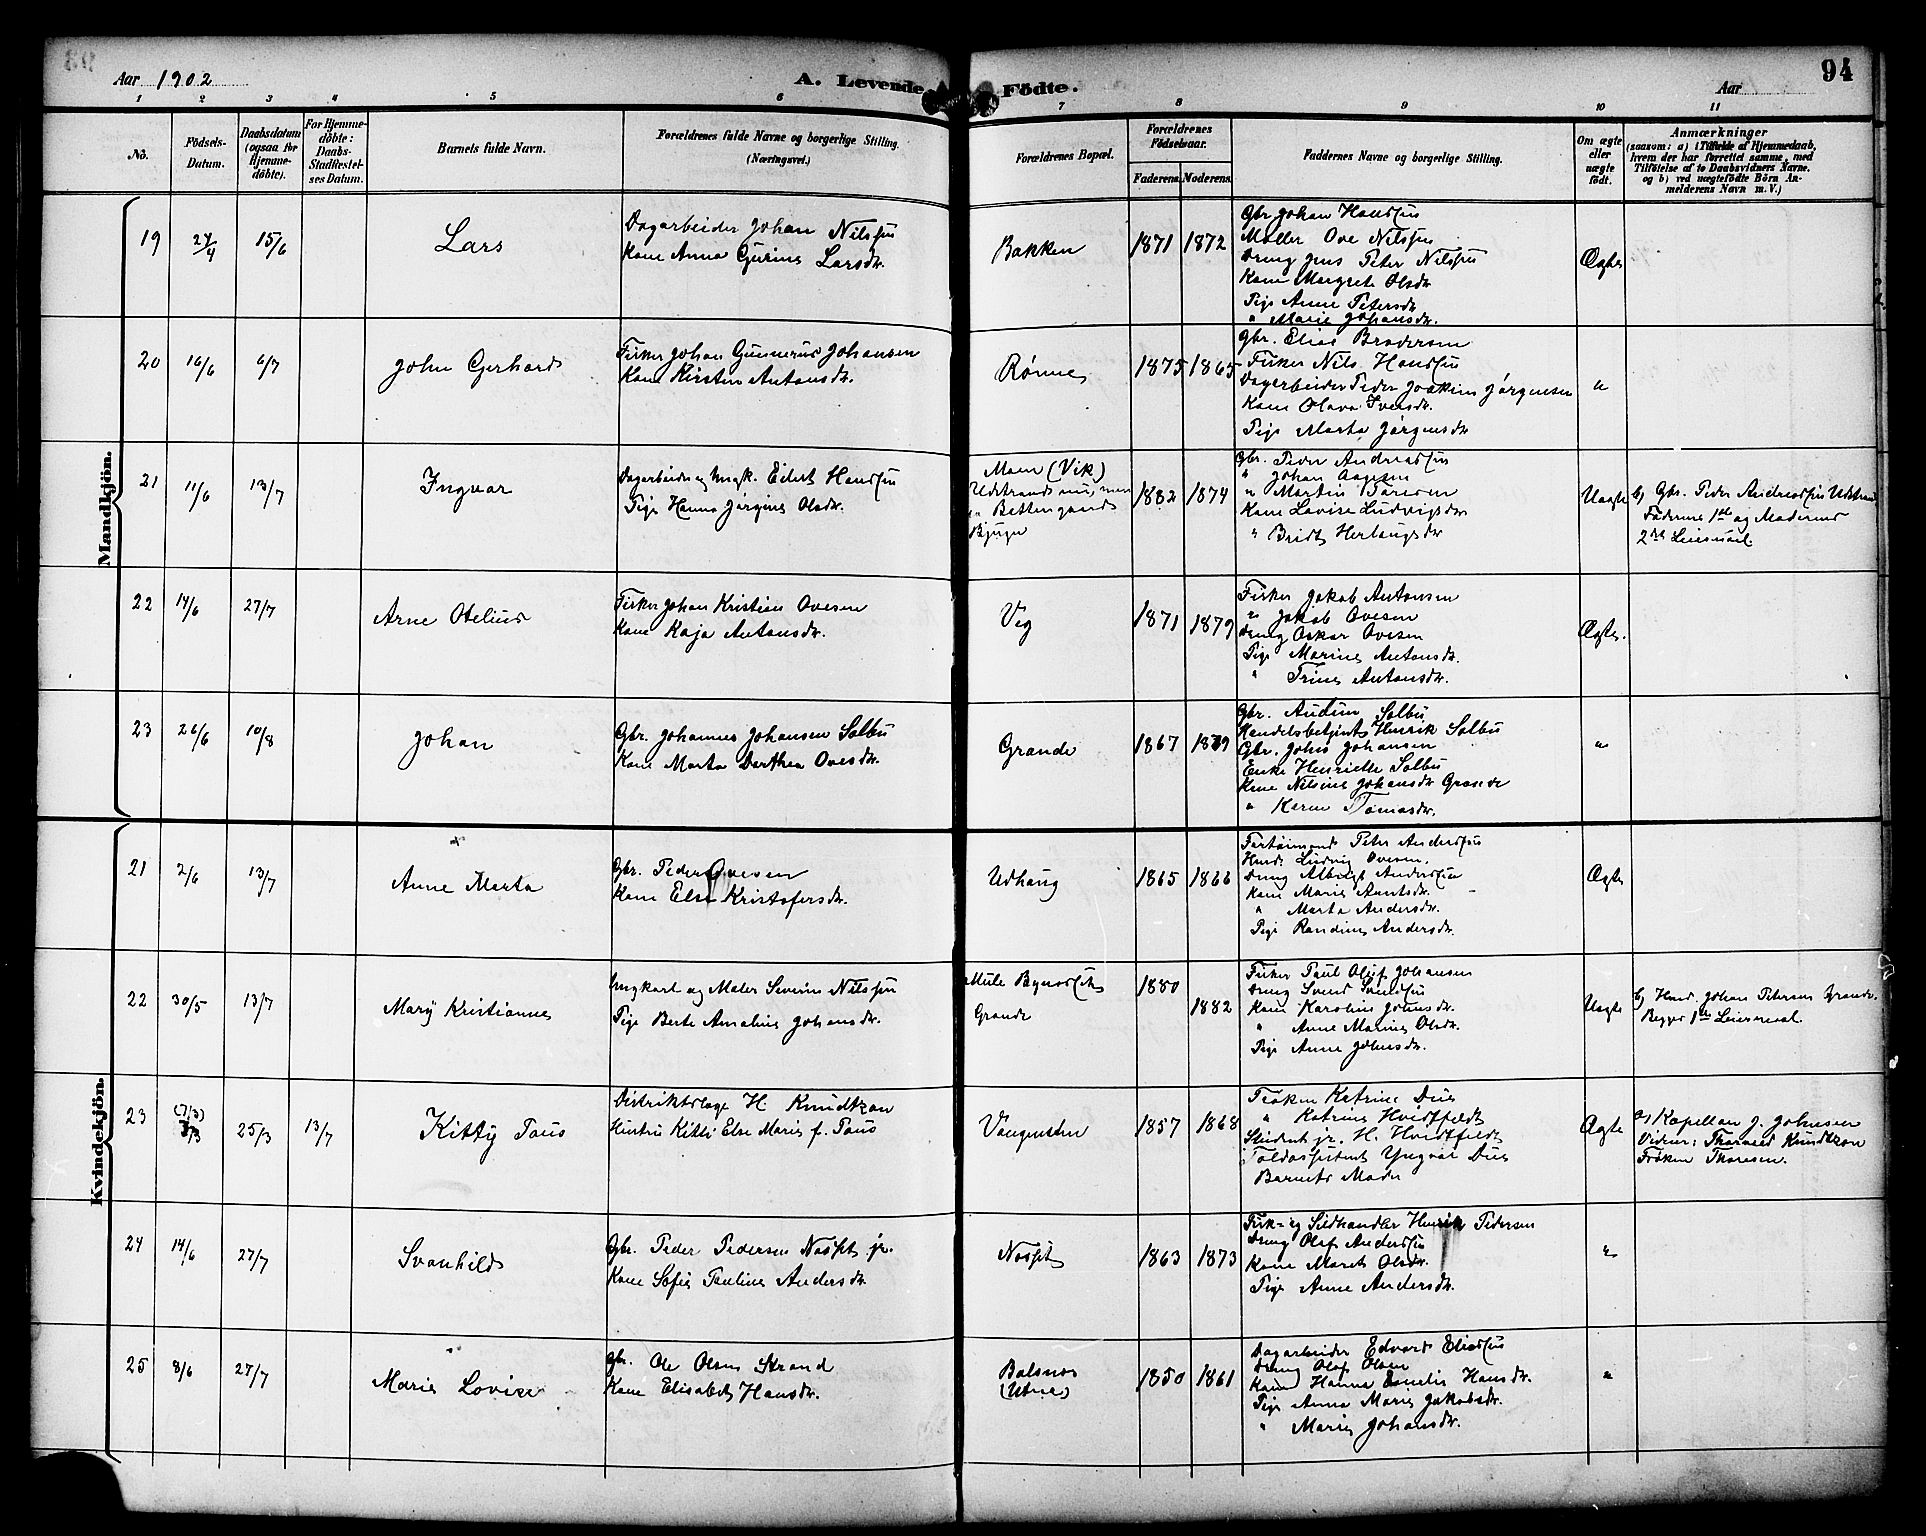 Aar 1902
A. Levende Födte.
Aar
94
1 2 3 4 5 6 7 8 9 10 11
No.
Födsels-Datum.
Daabsdatum (ogsaa for Hjemme-döbte).
For Hjemme-döbte: Daabs-Stadfæstel-ses Datum.
Barnets fulde Navn.
Forældrenes fulde Navne og borgerlige Stilling. (Næringsvei.)
Forældrenes Bopæl.
Forældrenes Födselsaar.
Faderens. Moderens.
Faddernes Navne og borgerlige Stilling.
Om ægte eller uægte födt.
Anmærkninger
(saasom: a) i Tilfælde af Hjemmedaab,
hvem der har forrettet samme, med
Tilföielse af to Daabsvidners Navne.
og b) ved uægtefödte Börn An-
melderens Navn m. V.)
Mandkjön.
19 27/4 15/6 Lars
Dagarbeider Johan Nilssen
Kone Anna Gurine Larsdr.
Bakken 1871 1872
Gbr Johan Hanssen
Møller Ove Nilssen
Dreng Jens Peter Nilssen
Kone Margrete Olsdr
Pige Anne Petersdr
" Marie Johansdr.
Ægte
20 16/6 6/7 John Gerhard
Fisker Johan Gunnerius Johansen
Kone Kirsten Antonsdr.
Rønne 1875 1865
Gbr. Elias Brodersen
Fisker Nils Hanssen
Dagarbeider Peder Joakim Jørgensen
Kone Olava Iversdr.
Pige Marta Jørgensdr
"
21 11/6 13/7 Ingvar
Dagarbeider og Ungk. Eilert Hanssen
Pige Hanna Jørgine Olsdr.
Moen (Vik)
Udstrand nu, men
Bettengaard
Bjugn
1882 1874
Gbr. Peder Andreassen
" Johan Aagesen
" Martin Toresen
Kone Lovise Ludvigsdr
" Bridt Herlaugsdr
Uægte
b) Gbr. Peder Andreassen Udstrand
Faderens 1ste og Moderens
2det Leiermaal.
22 14/6 27/7 Arne Otelius
Fisker Johan Kristian Ovesen
Kone Kaja Antonsdr.
Veg 1871 1879
Fisker Jakob Antonsen
" Jakob Ovesen
Dreng Oskar Ovesen
Pige Marine Antonsdr.
" Trine Antonsdr.
Ægte.
23 26/6 10/8 Johan
Gbr. Johannes Johansen Solbu
Kone Marta Dorthea Ovesdr.
Grande 1867 1879
Gbr. Audun Solbu
Handelsbetjent Henrik Solbu
Gbr. Johs Johansen
Enke Henriette Solbu
Kone Nilsine Johansdr Grande
" Karen Tomasdr.
"
Kvindekjön.
21 2/6 13/7 Anne Marta
Gbr. Peder Ovesen
Kone Else Kristofersdr.
Udhaug 1865 1866
Fartøimand Peter Anderssen
Husm. Ludvig Ovesen.
Dreng Albrigt Anderssen
Kone Marie Arntsdr.
" Marta Andersdr.
Pige Randine Andersdr.
Ægte
22 30/5 13/7 Mary Kristianne
Ungkarl og Maler Severin Nilssen
Pige Berte Amalie Johansdr.
Mule
Grande
1880 1882
Fisker Paul Oluf Johansen
Dreng Svend Svendsen
Kone Karoline Johnsdr
" Anne Marie Olsdr.
Pige Anne Johnsdr.
Uægte
b) Husm. Johan Petersen Grande.
Begges 1ste Leiermaal.
23 (7/3) 25/3 13/7 Kitty Paus
Distriktslæge H. Knudtzon
Hustru Kitti Else Marie f. Paus
1857 1868
Frøken Katrine Due
" Katrine Hvidtfeldt
Student jr. H. Hvidtfeldt
Toldassistent Yngvar Due
Barnets Moder
Ægte
a) Kapellan J. Johnsen
Vidner: Thorvald Knudtzon
Frøken Thoresen.
24 14/6 27/7 Svanhild
Gbr. Peder Pedersen Nosset jr.
Kone Sofie Pauline Andersdr.
Nosset 1863 1873
Fisk- og Sildhandler Henrik Pedersen
Dreng Olaf Anderssen
Kone Marit Olsdr.
Pige Anne Andersdr.
"
25 8/6 27/7 Marie Lovise
Gbr. Ole Olsen Strand
Kone Elisabet Hansdr.
Balsnes
(Utne)
1850 1861
Dagarbeider Edvard Eliassen
Dreng Olaf Olsen
Kone Hanna Emelie Hansdr.
Pige Anna Marie Jakobsdr.
" Marie Johansdr.
"